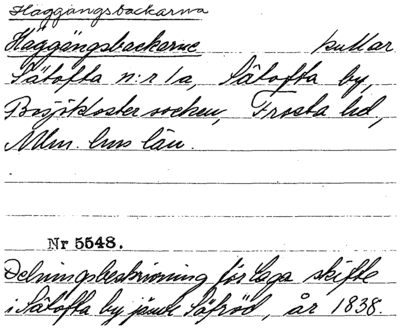 Häggångsbackarna
Häggångsbackarne kullar
Sätofta n:r 1a, Sätofta by,
Bosjökloster socken, Frosta hd,
Mlm. hus län.
Nr 5548.
Delningsbeskrivning för laga skifte
i Sätofta by jämte Säfröd, år 1838.